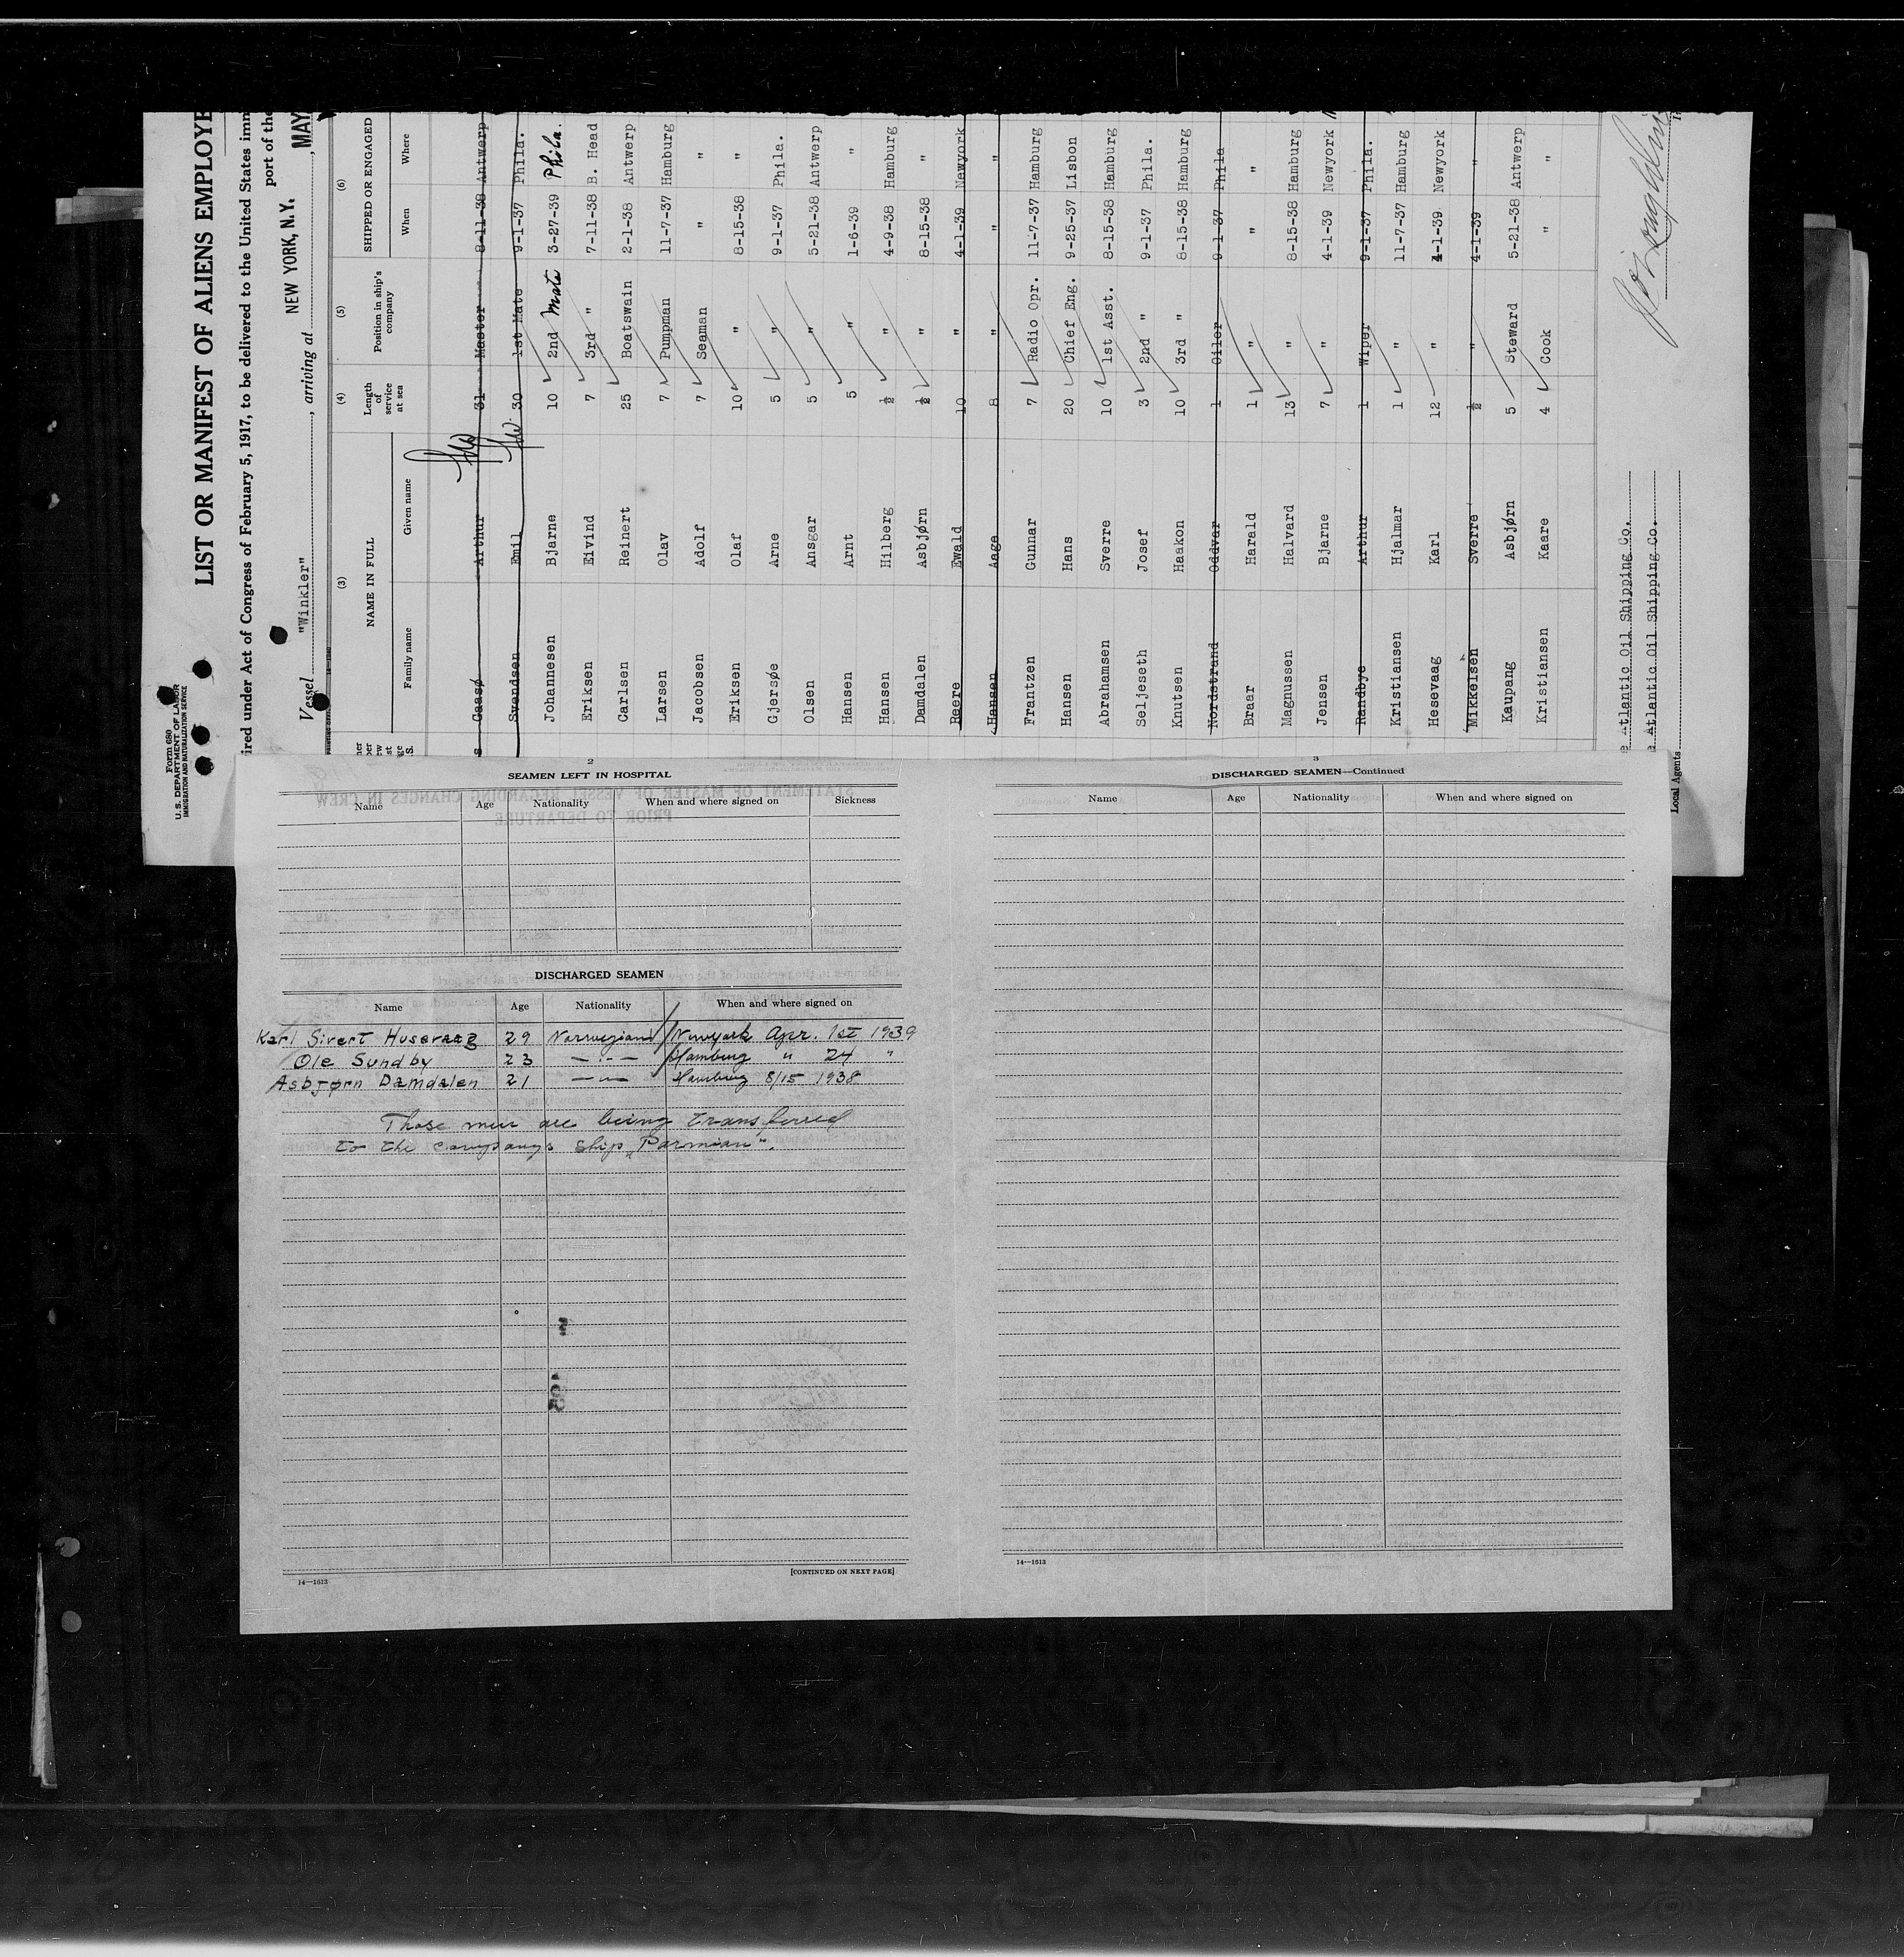 Form 680
U. S. DEPARTMENT OF LABOR
IMMIGRATION AND NATURALIZATION SERVICE
LIST OR MANIFEST OF ALIENS EMPLOYE
ired under Act of Congress of February 5, 1917, to be delivered to the United States imm
port of the
Vessel "Winkler", arriving at NEW YORK, N.Y., MAY
(3) (4) (5) (6)
NAME IN FULL Length of service at sea Position in ship's company SHIPPED OR ENGAGED
Family name Given name When Where
Gaasø Arthur 31 Master 8-11-38 Antwerp
Svendsen Emil 30 1st Mate 9-1-37 Phila.
Johannesen Bjarne 10 2nd Mate 3-27-39 Phila.
Eriksen Eivind 7 3rd " 7-11-38 B. Head
Carlsen Reinert 25 Boatswain 2-1-38 Antwerp
Larsen Olav 7 Pumpman 11-7-37 Hamburg
Jacobsen Adolf 7 Seaman " "
Eriksen Olaf 10 " 8-15-38 "
Gjersøe Arne 5 " 9-1-37 Phila.
Olsen Ansgar 5 " 5-21-38 Antwerp
Hansen Arnt 5 " 1-6-39 "
Hansen Hilberg ½ " 4-9-38 Hamburg
Damdalen Asbjørn ½ " 8-15-38 "
Reere Ewald 10 " 4-1-39 Newyork
Hansen Aage 8 " " "
Frantzen Gunnar 7 Radio Opr. 11-7-37 Hamburg
Hansen Hans 20 Chief Eng. 9-25-37 Lisbon
Abrahamsen Sverre 10 1st Asst. 8-15-38 Hamburg
Seljeseth Josef 3 2nd " 9-1-37 Phila.
Knutsen Haakon 10 3rd " 8-15-38 Hamburg
Nordstrand Oddvar 1 Oiler 9-1-37 Phila
Braar Harald 1 " " "
Magnussen Halvard 13 " 8-15-38 Hamburg
Jensen Bjarne 7 " 4-1-39 Newyork
Randbye Arthur 1 Wiper 9-1-37 Phila.
Kristiansen Hjalmar 1 " 11-7-37 Hamburg
Hesevaag Karl 12 " 4-1-39 Newyork
Mikkelsen Sverre ½ " 4-1-39 "
Kaupang Asbjørn 5 Steward 5-21-38 Antwerp
Kristiansen Kaare 4 Cook " "
e Atlantic Oil Shipping Co.
e Atlantic Oil Shipping Co.
Local Agents
2
SEAMEN LEFT IN HOSPITAL
Name Age Nationality When and where signed on Sickness
DISCHARGED SEAMEN
Name Age Nationality When and where signed on
Karl Sivert Husevaag 29 Norwegian Newyork Apr. 1st 1939
Ole Sundby 23 —"— Hamburg " 24 "
Asbjørn Damdalen 21 —"— Hamburg 8/15 1938
Those men are being transferred
to the companys ship „Parmian".
14—1613
[CONTINUED ON NEXT PAGE]
3
DISCHARGED SEAMEN—Continued
Name Age Nationality When and where signed on
14—1613